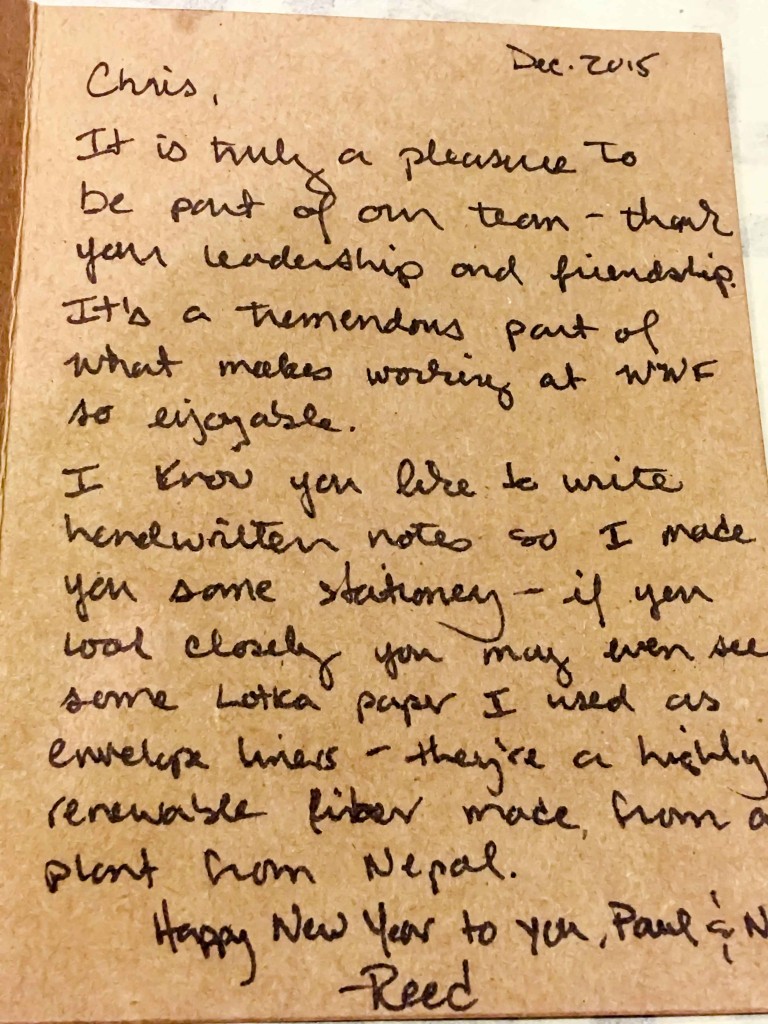 Dec. 2015
Chris,
It is truly a pleasure to
be part of our team - thank
your leadership and friendship.
It's a tremendous part of
what makes working at WWF
so enjoyable.
I know you like to write
handwritten notes so I made
you some stationery - if you
look closely you may even see
some Lotka paper I used as
envelope liners - they're a highly
renewable fiber made, from a
plant from Nepal.
Happy New Year to you, Paul & N
-Reed